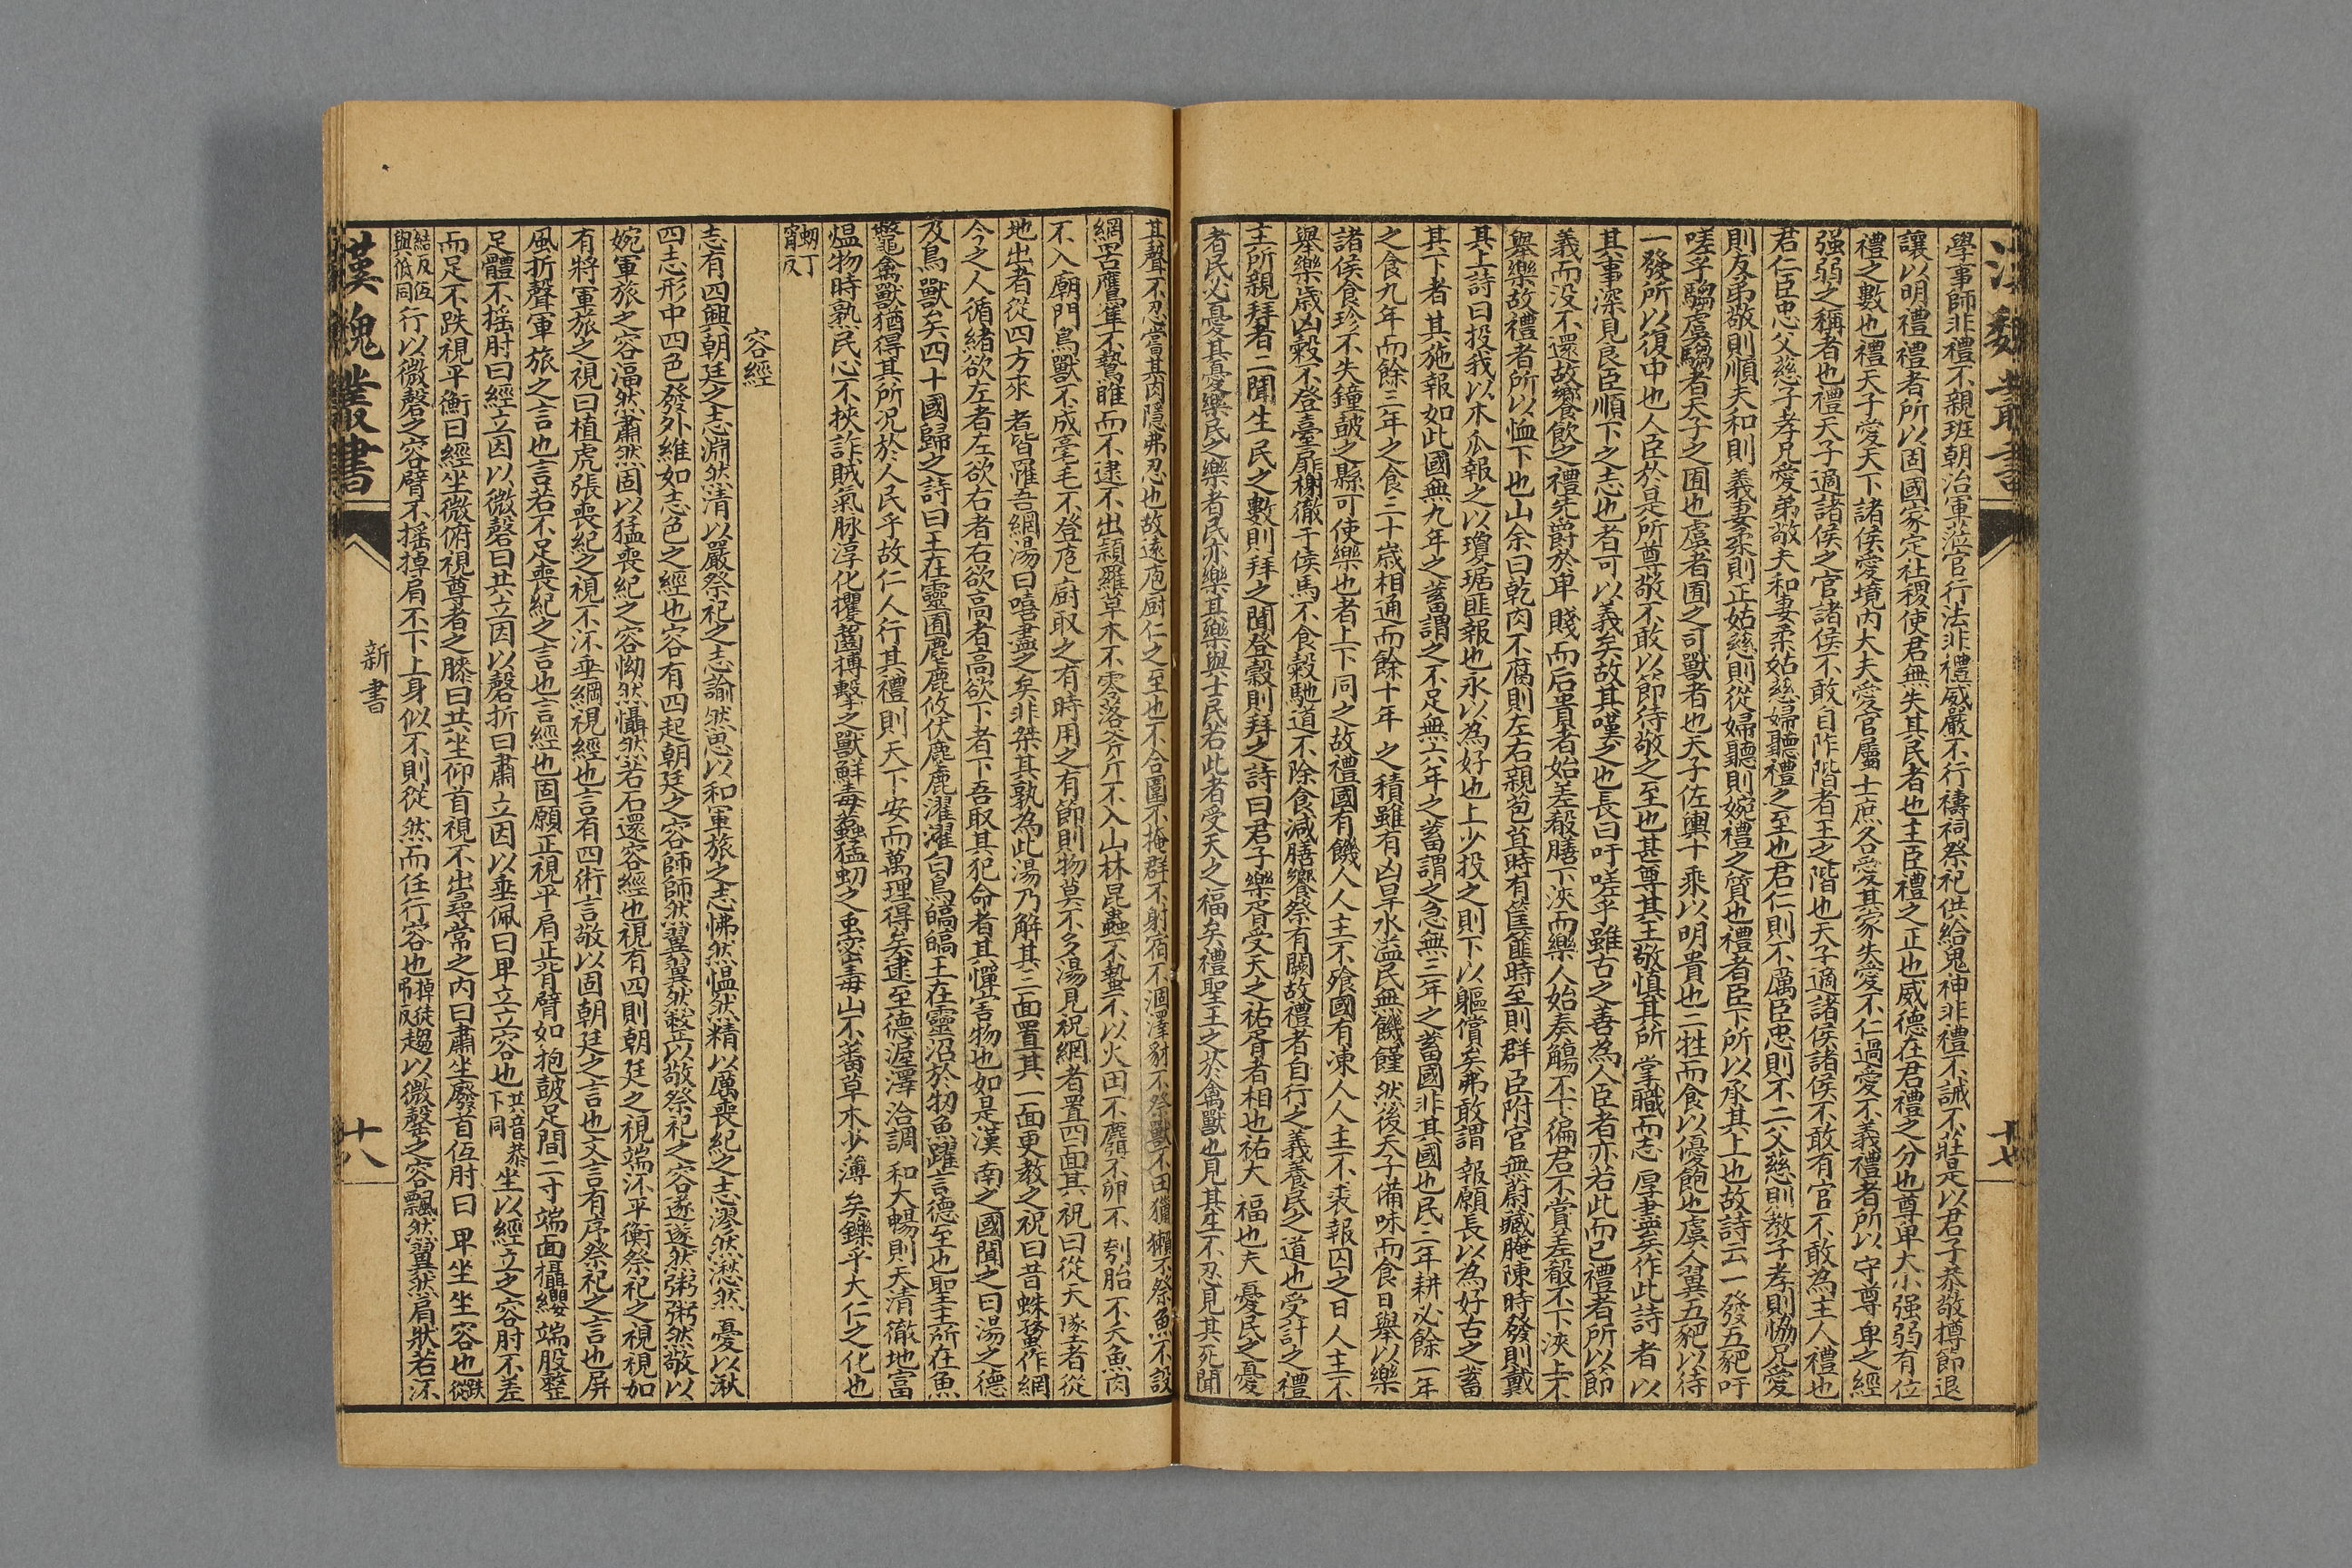 漢魏叢書
十七
學事師非禮不親班朝治軍蒞官行法非禮威嚴不行禱祠祭祀供給鬼神非禮不誠不莊是以君子恭敬撙節退
讓以明禮禮者所以固國家定社稷使君無失其民者也主臣禮之正也威德在君禮之分也尊卑大小强弱有位
禮之數也禮天子愛天下諸侯愛境內大夫愛官屬士庶各愛其家失愛不仁過愛不義禮者所以守尊卑之經
强弱之稱者也禮天子適諸侯之官諸侯不敢自阼階者王之階也天子適諸侯諸侯不敢有官不敢為主人禮也
君仁臣忠父慈子孝兄愛弟敬夫和妻柔姑慈婦聽禮之至也君仁則不厲臣忠則不二父慈則教子孝則恊兄愛
則友弟敬則順夫和則義妻柔則正姑慈則從婦聽則婉禮之質也禮者臣下所以承其上也故詩云一發五豝吁
嗟乎騶虞騶者天子之囿也虞者囿之司獸者也天子佐輿十乘以明貴也二牲而食以優飽也虞人翼五豝以待
一發所以復中也人臣於是所尊敬不敢以節待敬之至也甚尊其主敬慎其所掌職而志厚盡矣作此詩者以
其事深見良臣順下之志也者可以義矣故其嘆之也長曰吁嗟乎雖古之善為人臣者亦若此而已禮者所以節
義而没不還故饗飲之禮先爵於卑賤而后貴者始差殽膳下浹而樂人始奏觴不下徧君不嘗差殽不下浹上不
舉樂故禮者所以恤下也由余曰乾肉不腐則左右親苞苴時有筐篚時至則群臣附官無蔚藏腌陳時發則戴
其上詩曰投我以木瓜報之以瓊琚匪報也永以為好也上少投之則下以軀償矣弗敢謂報願長以為好古之蓄
其下者其施報如此國無九年之蓄謂之不足無六年之蓄謂之急無三年之蓄國非其國也民三年耕必餘一年
之食九年而餘三年之食三十歲相通而餘十年之積雖有凶旱水溢民無饑饉然後天子備味而食日舉以樂
諸侯食珍不失鐘鼓之縣可使樂也者上下同之故禮國有饑人人主不飱國有凍人人主不裘報囚之日人主不
舉樂歲凶穀不登臺扉榭徹干侯馬不食穀馳道不除食減膳饗祭有闕故禮者自行之義養民之道也受計之禮
主所親拜者二聞生民之數則拜之聞登穀則拜之詩曰君子樂胥受天之祜胥者相也祜大福也夫憂民之憂
者民必憂其憂樂民之樂者民亦樂其樂與士民若此者受天之福矣禮聖王之於禽獸也見其生不忍見其死聞
其聲不忍嘗其肉隱弗忍也故遠庖廚仁之至也不合圍不掩群不射宿不涸澤豺不祭獸不田獵獺不祭魚不設
網罟鷹隼不鷙睢而不逮不出頴羅草木不零落斧斤不入山林昆蟲不蟄不以火田不麛不卵不刳胎不夭魚肉
不入廟門鳥獸不成毫毛不登庖廚取之有時用之有節則物莫不多湯見祝網者置四面其祝曰從天墜者從
地出者從四方來者皆罹吾網湯曰嘻盡之矣非桀其孰為此湯乃解其三面置其一面更教之祝曰昔蛛蝥作網
今之人循緒欲左者左欲右者右欲高者高欲下者下吾取其犯命者其憚害物也如是漢南之國聞之曰湯之德
及鳥獸矣四十國歸之詩曰王在靈囿麀鹿攸伏麀鹿濯濯白鳥皜皜王在靈沼於牣魚躍言德至也聖主所在魚
鼈禽獸猶得其所况於人民乎故仁人行其禮則天下安而萬理得矣逮至德渥澤洽調和大暢則天清徹地富
煴物時熟民心不挾詐賊氣脉淳化攫齧搏擊之獸鮮毒蠚猛蚏之虫密毒山不蕃草木少薄矣鑠乎大仁之化也
蚏丁
宵反
容經
志有四興朝廷之志淵然清以嚴祭祀之志諭然思以和軍旅之志怫然愠然精以厲喪紀之志漻然愁然憂以湫
四志形中四色發外維如志色之經也容有四起朝廷之容師師然翼翼然整以敬祭祀之容遂遂然粥粥然敬以
婉軍旅之容湢然肅然固以猛喪紀之容怮然懾然若不還容經也視有四則朝廷之視端𣴑平衡祭祀之視視如
有將軍旅之視曰植虎張喪紀之視不𣴑垂綱視經也言有四術言敬以固朝廷之言也文言有序祭祀之言也屏
風折聲軍旅之言也言若不足喪紀之言也言經也固願正視平肩正背臂如抱鼓足間二寸端面攝纓端股整
足體不摇肘曰經立因以微磬曰共立因以磬折曰肅立因以垂佩曰卑立立容也共音恭下同坐以經立之容肘不差
而足不跌視平衡曰經坐微俯視尊者之膝曰共坐仰首視不出尋常之內曰肅坐廢首伍肘曰卑坐坐容也跌徒
結反伍與低同行以微磬之容臂不摇掉肩不下上身似不則從然而任行容也掉徒弔反趨以微磬之容飄然翼然肩狀若𣴑
漢魏叢書
新書
十八